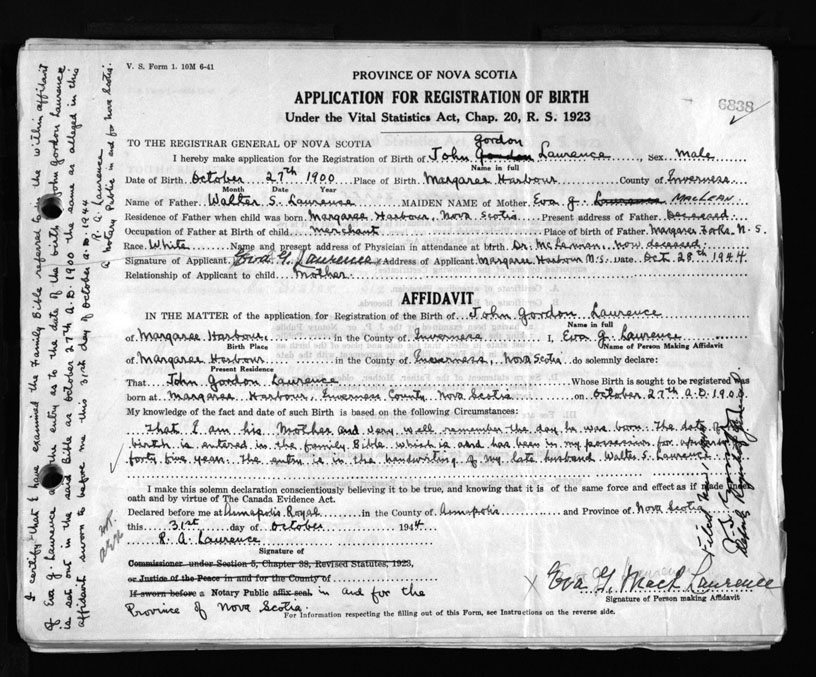 V. S. Form 1. 10M 6-41
PROVINCE OF NOVA SCOTIA
APPLICATION FOR REGISTRATION OF BIRTH
Under the Vital Statistics Act, Chap. 20, R. S. 1923
6838
TO THE REGISTRAR GENERAL OF NOVA SCOTIA
Gordon
I hereby make application for the Registration of Birth of John Gordon Laurence, Sex Male
Name in full
Date of Birth October 27th 1900 Place of Birth Margaree Harbour County of Inverness
Month Date Year
Name of Father Walter S. Laurence MAIDEN NAME of Mother Eva G. Laurence MacLean
Residence of Father when child was born Margaree Harbour, Nova Scotia Present address of Father Deceased
Occupation of Father at Birth of child merchant Place of birth of Father Margaree Forks N.S.
Race White Name and present address of Physician in attendance at birth Dr. McLennan, now deceased
Signature of Applicant Eva G. Laurence Address of Applicant Margaree Harbour N.S. Date Oct 28th 1944
Relationship of Applicant to child Mother
AFFIDAVIT
IN THE MATTER of the application for Registration of the Birth of John Gordon Laurence
Name in full
of Margaree Harbour in the County of Inverness I, Eva G. Laurence
Birth Place Name of Person Making Affidavit
of Margaree Harbour in the County of Inverness, Nova Scotia do solemnly declare:
Present Residence
That John Gordon Laurence Whose Birth is sought to be registered was
born at Margaree Harbour, Inverness County Nova Scotia on October 27th A.D. 1900
My knowledge of the fact and date of such Birth is based on the following Circumstances:
That I am his Mother and very well remember the day he was born. The date of
birth is entered in the family Bible which is and has been in my possession for
forty five years. The entry is in the handwriting of my late husband Walter S. Laurence
I make this solemn declaration conscientiously believing it to be true, and knowing that it is of the same force and effect as if made under
oath and by virtue of The Canada Evidence Act.
Declared before me at Annapolis Royal in the County of Annapolis and Province of Nova Scotia
this 31st day of October 1944
R. A. Laurence
Signature of
Commissioner under Section 5, Chapter 38, Revised Statutes, 1923,
or Justice of the Peace in and for the County of
If sworn before a Notary Public affix seal. in and for the
Province of Nova Scotia.
X Eva G. MacL Laurence
Signature of Person making Affidavit
For Information respecting the filling out of this Form, see Instructions on the reverse side.
I certify that I have examined the Family Bible referred to in the within affidavit
of Eva G. Laurence and the entry as to the date of the birth of John Gordon Laurence
is set out in the said Bible as October 27th A.D. 1900 the same as alleged in this
affidavit sworn to before me this 31st day of October A.D. 1944
R. A. Laurence
A Notary Public in and for Nova Scotia.